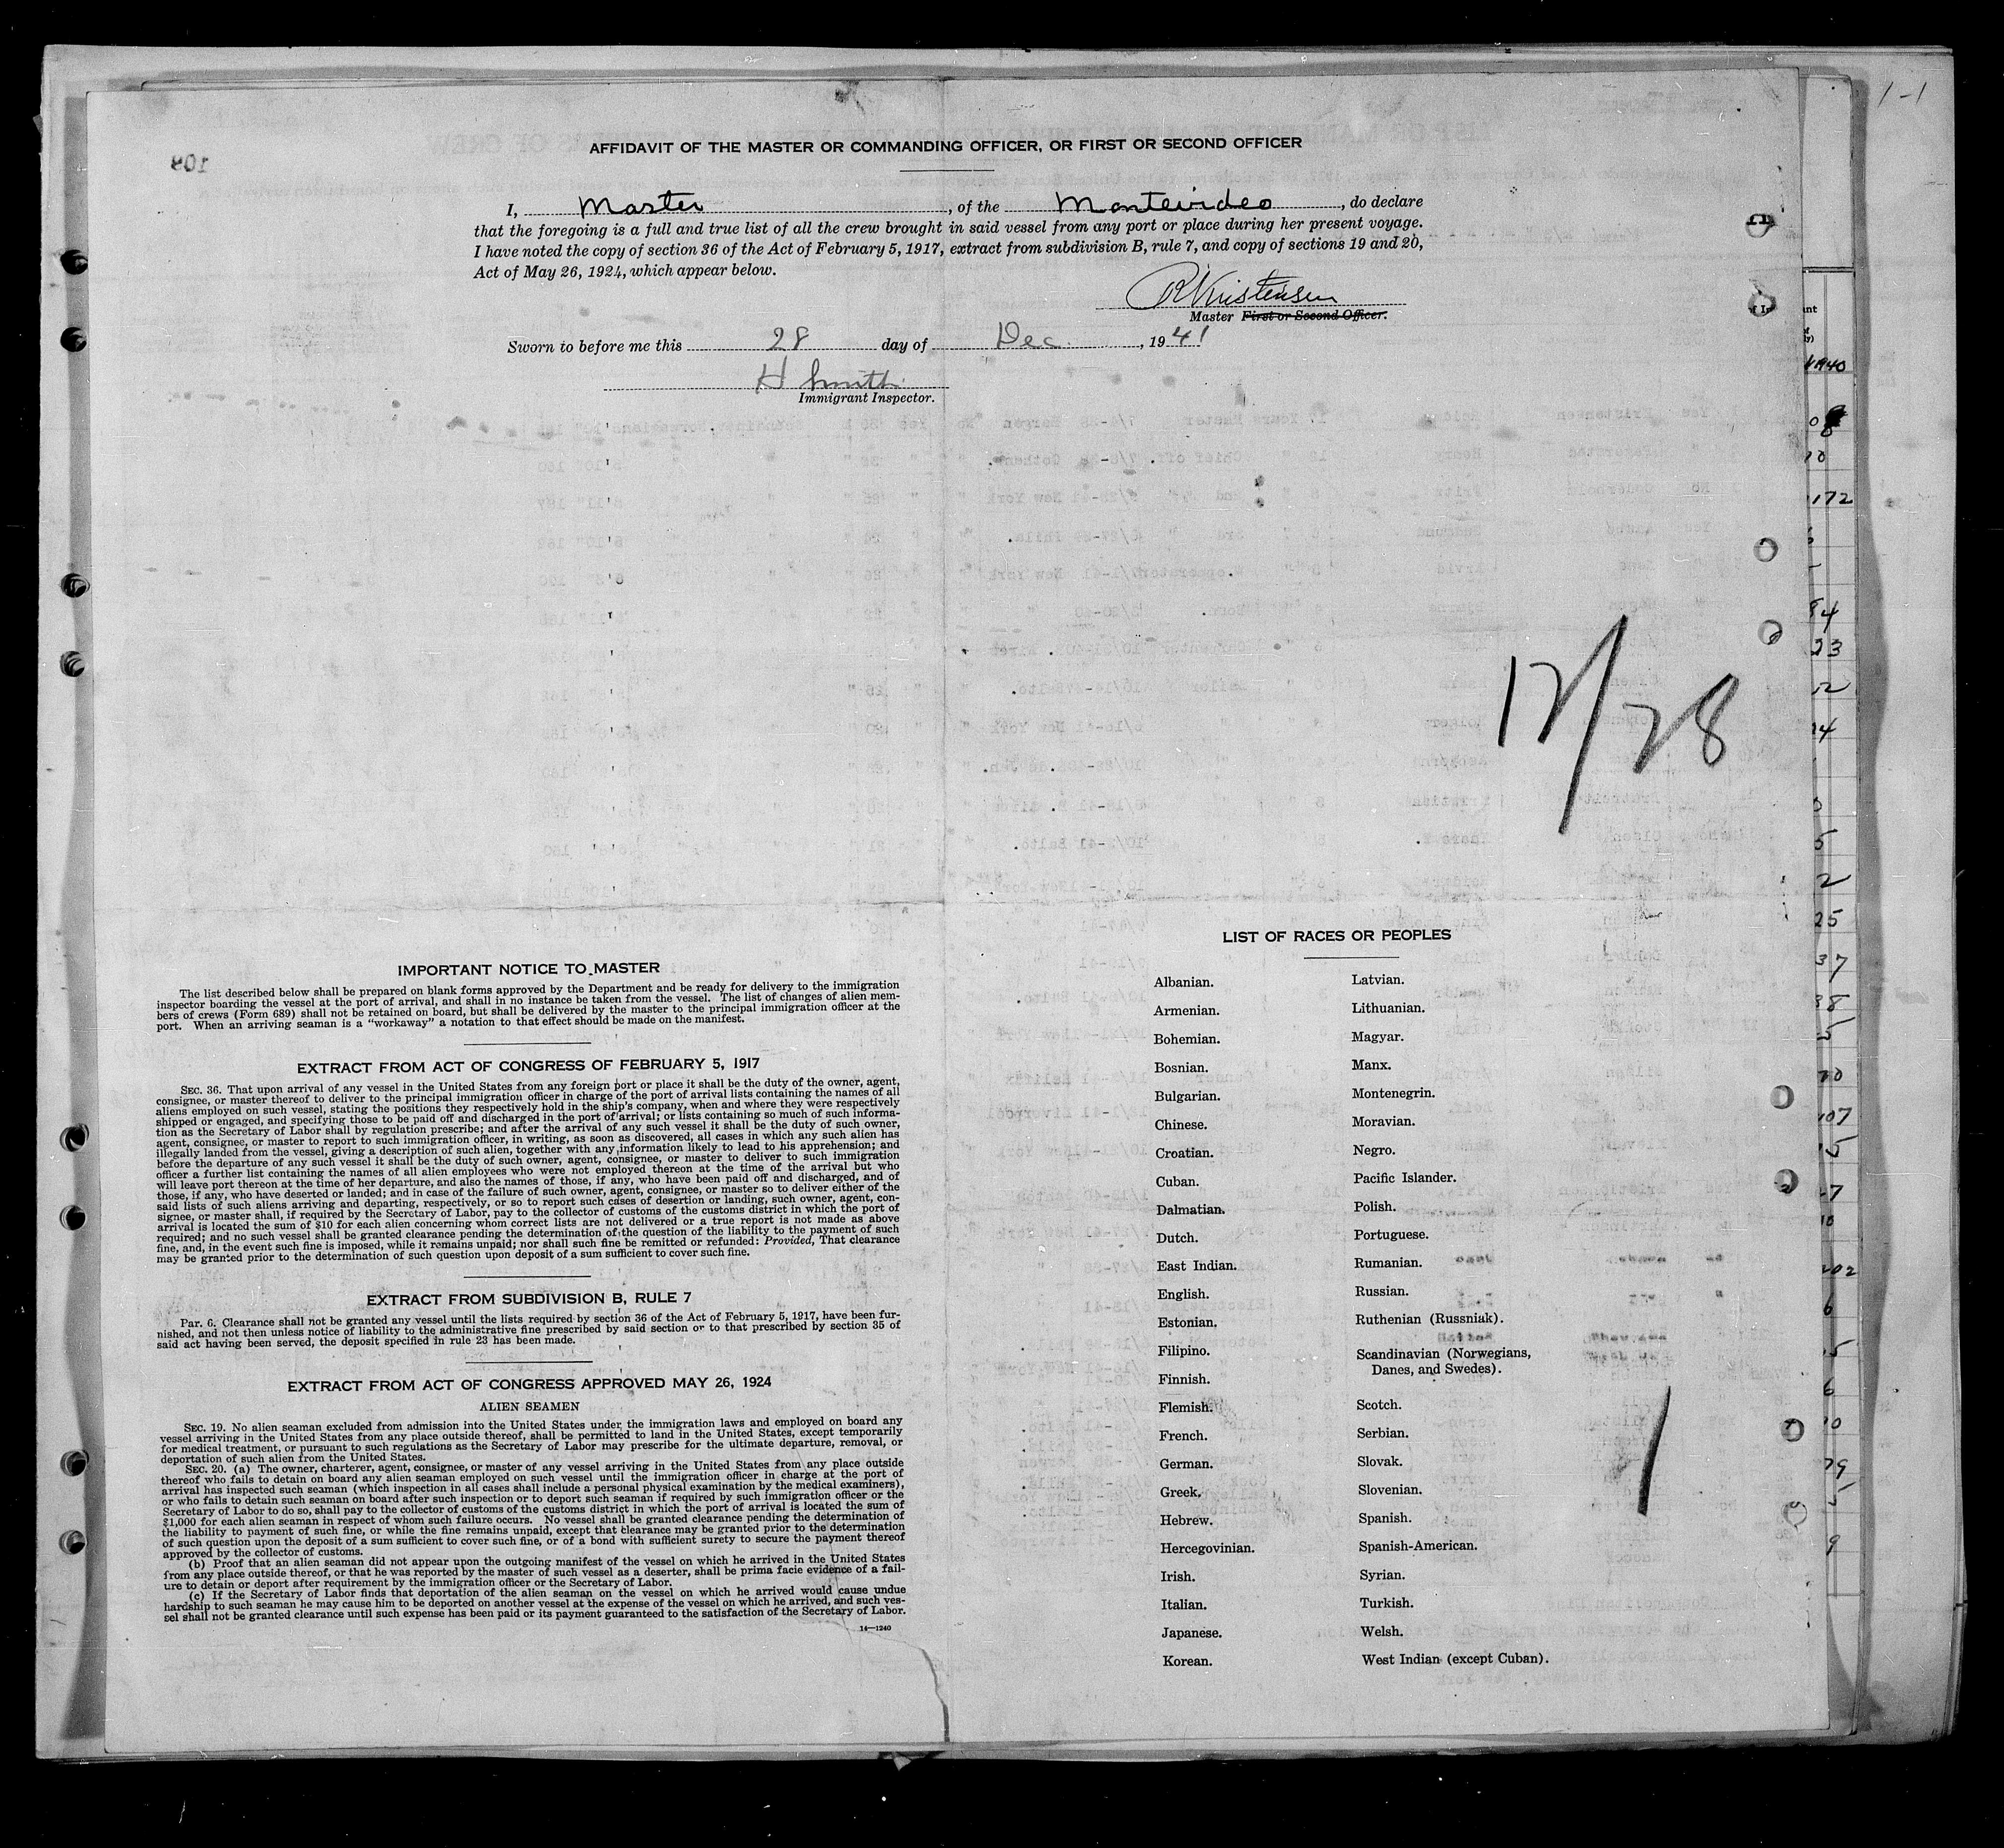 1-1
AFFIDAVIT OF THE MASTER OR COMMANDING OFFICER, OR FIRST OR SECOND OFFICER
I, Master, of the Montevideo, do declare
that the foregoing is a full and true list of all the crew brought in said vessel from any port or place during her present voyage.
I have noted the copy of section 36 of the Act of February 5, 1917, extract from subdivision B, rule 7, and copy of sections 19 and 20,
Act of May 26, 1924, which appear below.
R Kristensen
Master First or Second Officer.
Sworn to before me this 28 day of Dec., 1941
H Smith
Immigrant Inspector.
12/28
IMPORTANT NOTICE TO MASTER
The list described below shall be prepared on blank forms approved by the Department and be ready for delivery to the immigration
inspector boarding the vessel at the port of arrival, and shall in no instance be taken from the vessel. The list of changes of alien mem-
bers of crews (Form 689) shall not be retained on board, but shall be delivered by the master to the principal immigration officer at the
port. When an arriving seaman is a “workaway” a notation to that effect should be made on the manifest.
EXTRACT FROM ACT OF CONGRESS OF FEBRUARY 5, 1917
SEC. 36. That upon arrival of any vessel in the United States from any foreign port or place it shall be the duty of the owner, agent,
consignee, or master thereof to deliver to the principal immigration officer in charge of the port of arrival lists containing the names of all
aliens employed on such vessel, stating the positions they respectively hold in the ship's company, when and where they were respectively
shipped or engaged, and specifying those to be paid off and discharged in the port of arrival; or lists containing so much of such informa-
tion as the Secretary of Labor shall by regulation prescribe; and after the arrival of any such vessel it shall be the duty of such owner,
agent, consignee, or master to report to such immigration officer, in writing, as soon as discovered, all cases in which any such alien has
illegally landed from the vessel, giving a description of such alien, together with any information likely to lead to his apprehension; and
before the departure of any such vessel it shall be the duty of such owner, agent, consignee, or master to deliver to such immigration
officer a further list containing the names of all alien employees who were not employed thereon at the time of the arrival but who
will leave port thereon at the time of her departure, and also the names of those, if any, who have been paid off and discharged, and of
those, if any, who have deserted or landed; and in case of the failure of such owner, agent, consignee, or master so to deliver either of the
said lists of such aliens arriving and departing, respectively, or so to report such cases of desertion or landing, such owner, agent, con-
signee, or master shall, if required by the Secretary of Labor, pay to the collector of customs of the customs district in which the port of
arrival is located the sum of $10 for each alien concerning whom correct lists are not delivered or a true report is not made as above
required; and no such vessel shall be granted clearance pending the determination of the question of the liability to the payment of such
fine, and, in the event such fine is imposed, while it remains unpaid; nor shall such fine be remitted or refunded: Provided, That clearance
may be granted prior to the determination of such question upon deposit of a sum sufficient to cover such fine.
EXTRACT FROM SUBDIVISION B, RULE 7
Par. 6. Clearance shall not be granted any vessel until the lists required by section 36 of the Act of February 5, 1917, have been fur-
nished, and not then unless notice of liability to the administrative fine prescribed by said section or to that prescribed by section 35 of
said act having been served, the deposit specified in rule 23 has been made.
EXTRACT FROM ACT OF CONGRESS APPROVED MAY 26, 1924
ALIEN SEAMEN
SEC. 19. No alien seaman excluded from admission into the United States under the immigration laws and employed on board any
vessel arriving in the United States from any place outside thereof, shall be permitted to land in the United States, except temporarily
for medical treatment, or pursuant to such regulations as the Secretary of Labor may prescribe for the ultimate departure, removal, or
deportation of such alien from the United States.
SEC. 20. (a) The owner, charterer, agent, consignee, or master of any vessel arriving in the United States from any place outside
thereof who fails to detain on board any alien seaman employed on such vessel until the immigration officer in charge at the port of
arrival has inspected such seaman (which inspection in all cases shall include a personal physical examination by the medical examiners),
or who fails to detain such seaman on board after such inspection or to deport such seaman if required by such immigration officer or the
Secretary of Labor to do so, shall pay to the collector of customs of the customs district in which the port of arrival is located the sum of
$1,000 for each alien seaman in respect of whom such failure occurs. No vessel shall be granted clearance pending the determination of
the liability to payment of such fine, or while the fine remains unpaid, except that clearance may be granted prior to the determination
of such question upon the deposit of a sum sufficient to cover such fine, or of a bond with sufficient surety to secure the payment thereof
approved by the collector of customs.
(b) Proof that an alien seaman did not appear upon the outgoing manifest of the vessel on which he arrived in the United States
from any place outside thereof, or that he was reported by the master of such vessel as a deserter, shall be prima facie evidence of a fail-
ure to detain or deport after requirement by the immigration officer or the Secretary of Labor.
(c) If the Secretary of Labor finds that deportation of the alien seaman on the vessel on which he arrived would cause undue
hardship to such seaman he may cause him to be deported on another vessel at the expense of the vessel on which he arrived, and such ves-
sel shall not be granted clearance until such expense has been paid or its payment guaranteed to the satisfaction of the Secretary of Labor.
14—1240
LIST OF RACES OR PEOPLES
Albanian.
Armenian.
Bohemian.
Bosnian.
Bulgarian.
Chinese.
Croatian.
Cuban.
Dalmatian.
Dutch.
East Indian.
English.
Estonian.
Filipino.
Finnish.
Flemish.
French.
German.
Greek.
Hebrew.
Hercegovinian.
Irish.
Italian.
Japanese.
Korean.
Latvian.
Lithuanian.
Magyar.
Manx.
Montenegrin.
Moravian.
Negro.
Pacific Islander.
Polish.
Portuguese.
Rumanian.
Russian.
Ruthenian (Russniak).
Scandinavian (Norwegians,
Danes, and Swedes).
Scotch.
Serbian.
Slovak.
Slovenian.
Spanish.
Spanish-American.
Syrian.
Turkish.
Welsh.
West Indian (except Cuban).